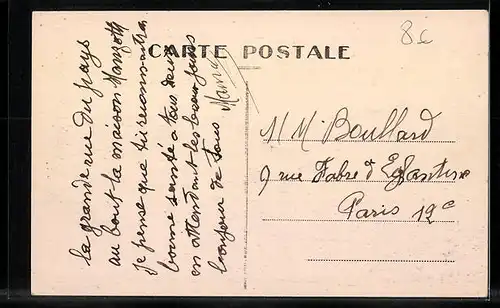 CARTE POSTALE
8 c
la grande rue du pays
au bout la maison Manzoth
je pense que tu reconnaitra
bonne santé a tous deux
en attendant les beaux jours
bonjour de tous
M M. Boullard
9 rue Fabre d'Eglantine
Paris 12e